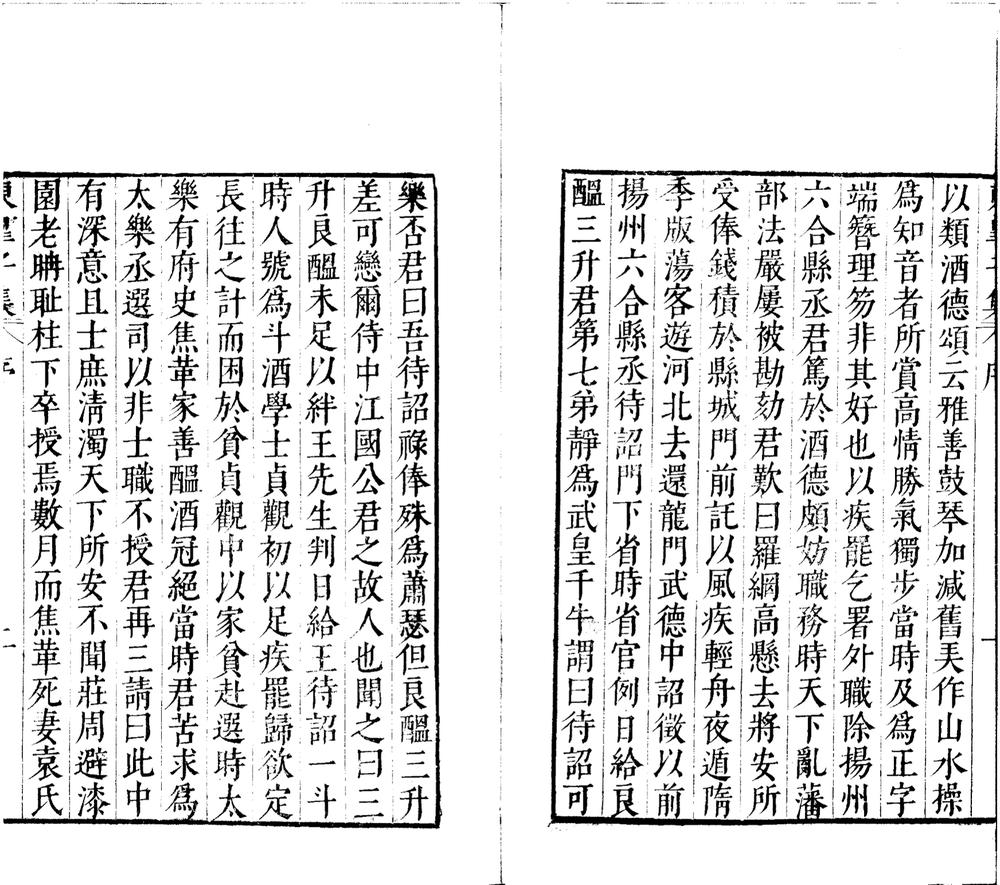 以類酒德頌云雅善鼓琴加減舊美作山水操
爲知音者所賞高情勝氣獨步當時及爲正字
端簪理笏非其好也以疾罷乞署外職除揚州
六合縣丞君篤於酒德頗妨職務時天下亂藩
部法嚴屢被勘劾君歎曰羅網高懸去將安所
受俸錢積於縣城門前託以風疾輕舟夜遁隋
季版蕩客遊河北去還龍門武德中詔徵以前
揚州六合縣丞待詔門下省時省官例日給良
醞三升君第七弟靜爲武皇千牛謂曰待詔可
樂否君曰吾待詔祿俸殊爲蕭瑟但良醞三升
差可戀爾侍中江國公君之故人也聞之曰三
升良醞未足以絆王先生判日給王待詔一斗
時人號爲斗酒學士貞觀初以足疾罷歸欲定
長往之計而困於貧貞觀中以家貧赴選時太
樂有府史焦革家善醞酒冠絕當時君苦求爲
太樂丞選司以非士職不授君再三請曰此中
有深意且士庶淸濁天下所安不聞莊周避漆
園老聃恥柱下卒授焉數月而焦革死妻袁氏